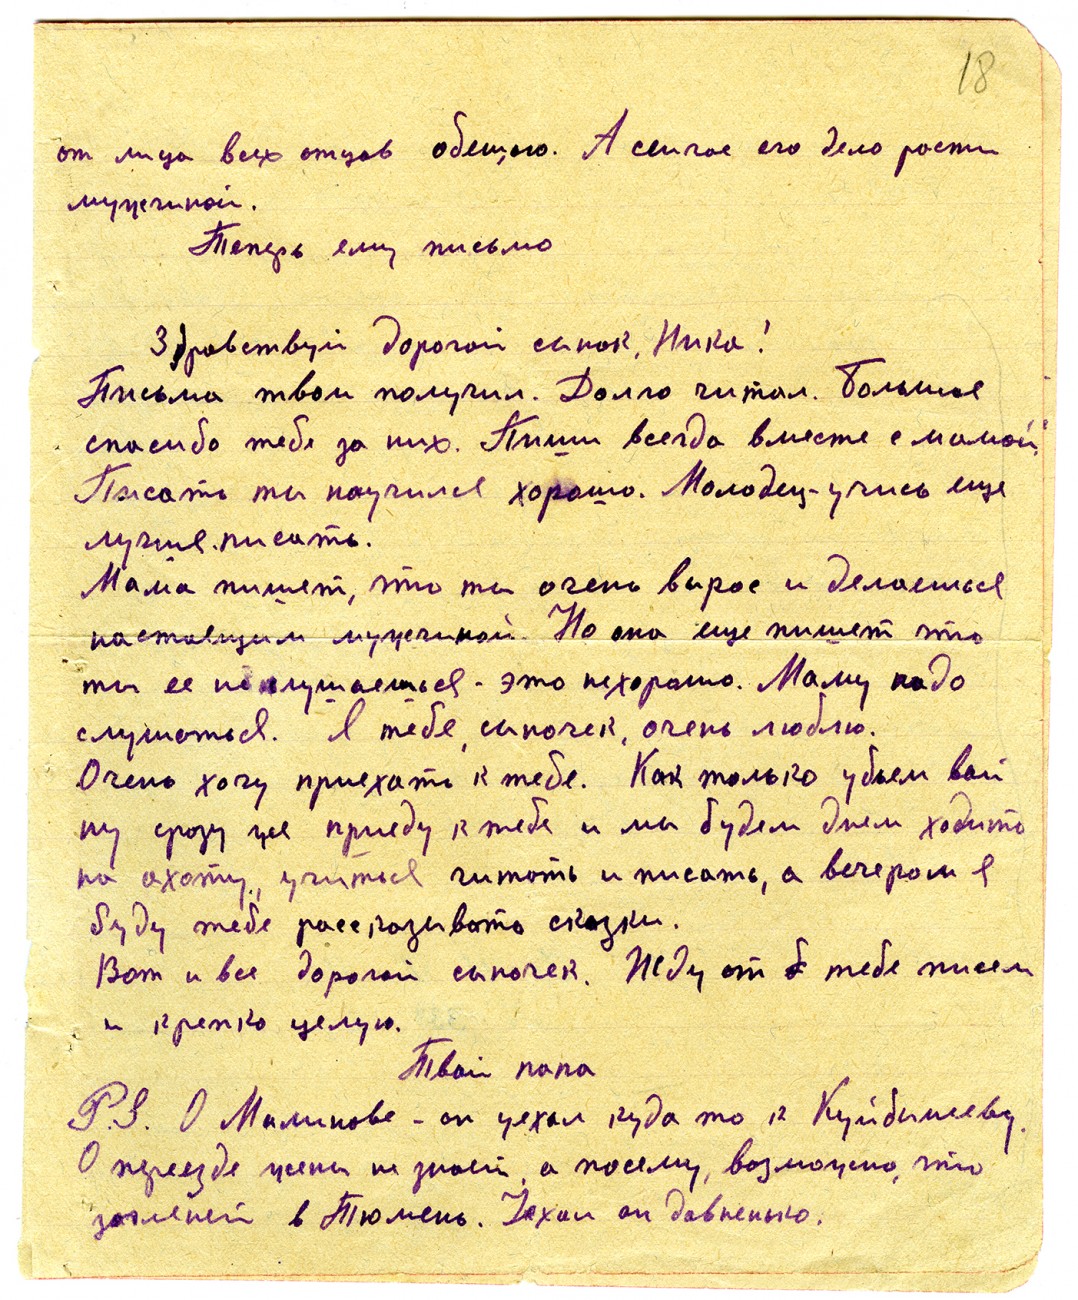 18
от лица всех отцов обещаю. А сейчас его дело расти
мужчиной.
Теперь ему письмо
Здравствуй дорогой сынок, Ника!
Письма твои получил. Долго читал. Большое
спасибо тебе за них. Пиши всегда вместе с мамой.
Писать ты научился хорошо. Молодец - учись еще
лучше писать.
Мама пишет, что ты очень вырос и делаешься
настоящим мужчиной. Но она еще пишет что
ты ее не слушаешься - это нехорошо. Маму надо
слушаться. Я тебя, сыночек, очень люблю.
Очень хочу приехать к тебе. Как только убьем вой
ну сразу же приеду к тебе и мы будем днем ходить
на охоту, учиться читать и писать, а вечером я
буду тебе рассказывать сказки.
Вот и все дорогой сыночек. Жду от тебя писем
и крепко целую.
Твой папа
P.S. О Малинове - он уехал куда то к Куйбышеву.
О переезде жены не знает, а посему, возможно, что
в Тюмень. Уехал он давненько.